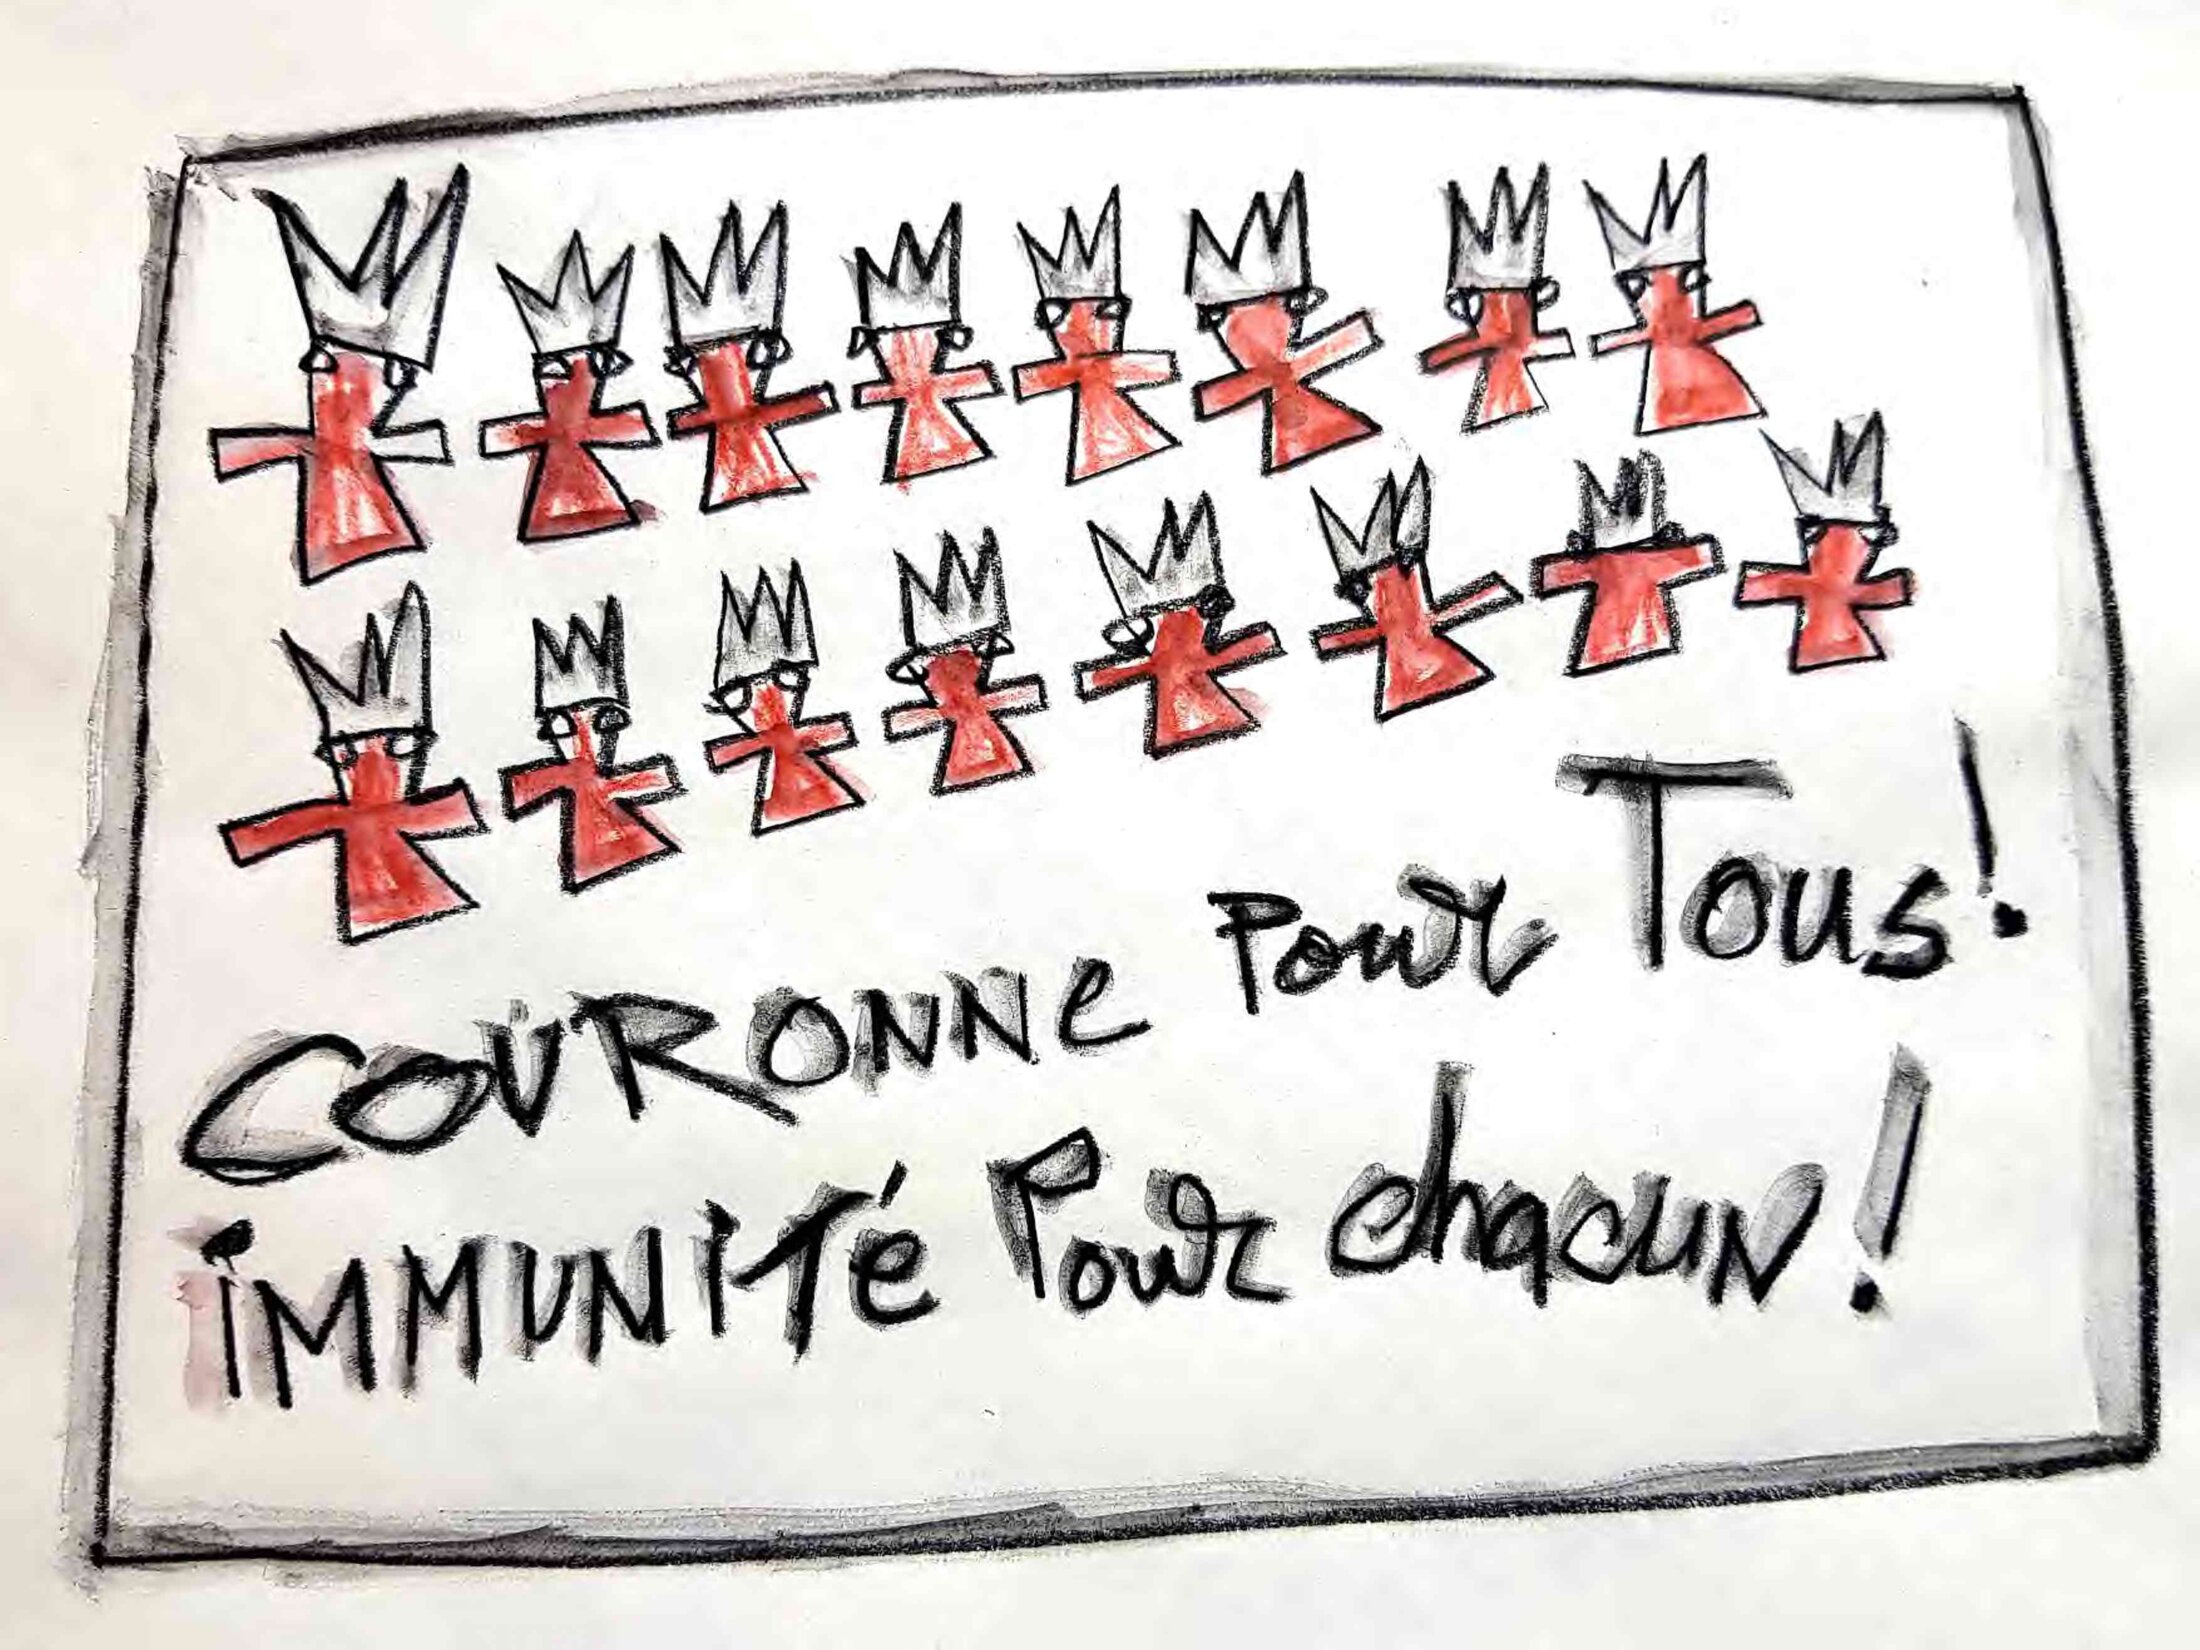 COURONNe Pour Tous!
iMMUNiTé Pour chacun!